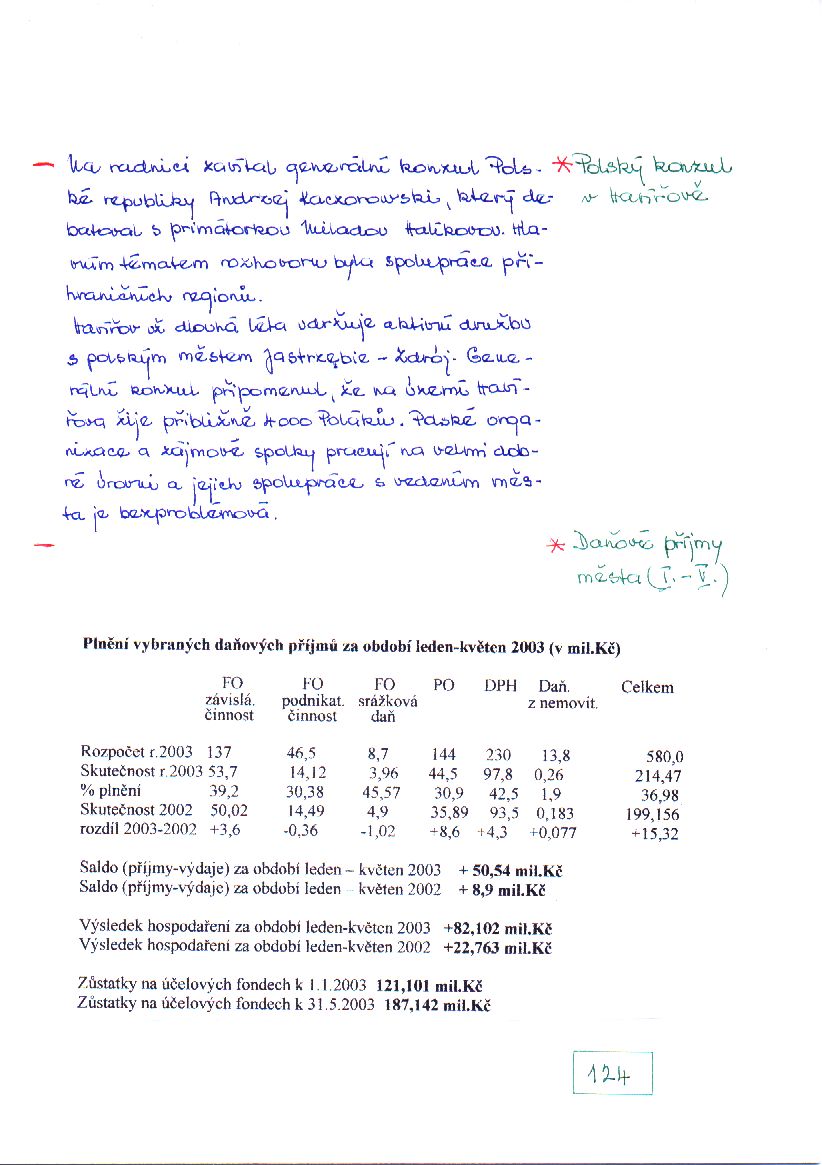 Na radnici zavítal generální konzul Pols-
* Polský konzul
ké republiky Andrzej Kaczorowski, který de-
v Havířově
batoval s primátorkou Miladou Halíkovou. Hla-
vním tématem rozhovoru byla spolupráce pří-
hraničních regionů.
Havířov už dlouhá léta udržuje aktivní družbu
s polským městem Jastrzębie - Zdrój. Gene-
rální konzul připomenul, že na území Haví-
řova žije přibližně 4000 Poláků. Polské orga-
nizace a zájmové spolky pracují na velmi dob-
ré úrovni a jejich spolupráce s vedením měs-
ta je bezproblémová.
* Daňové příjmy
města (I. - V.)
Plnění vybraných daňových příjmů za období leden-květen 2003 (v mil.Kč)
FO FO FO PO DPH Daň. Celkem
závislá. podnikat. srážková z nemovit.
činnost činnost daň
Rozpočet r.2003 137 46,5 8,7 144 230 13,8 580,0
Skutečnost r.2003 53,7 14,12 3,96 44,5 97,8 0,26 214,47
% plnění 39,2 30,38 45,57 30,9 42,5 1,9 36,98
Skutečnost 2002 50,02 14,49 4,9 35,89 93,5 0,183 199,156
rozdíl 2003-2002 +3,6 -0,36 -1,02 +8,6 +4,3 +0,077 +15,32
Saldo (příjmy-výdaje) za období leden – květen 2003 + 50,54 mil.Kč
Saldo (příjmy-výdaje) za období leden – květen 2002 + 8,9 mil.Kč
Výsledek hospodaření za období leden-květen 2003 +82,102 mil.Kč
Výsledek hospodaření za období leden-květen 2002 +22,763 mil.Kč
Zůstatky na účelových fondech k 1.1.2003 121,101 mil.Kč
Zůstatky na účelových fondech k 31.5.2003 187,142 mil.Kč
124